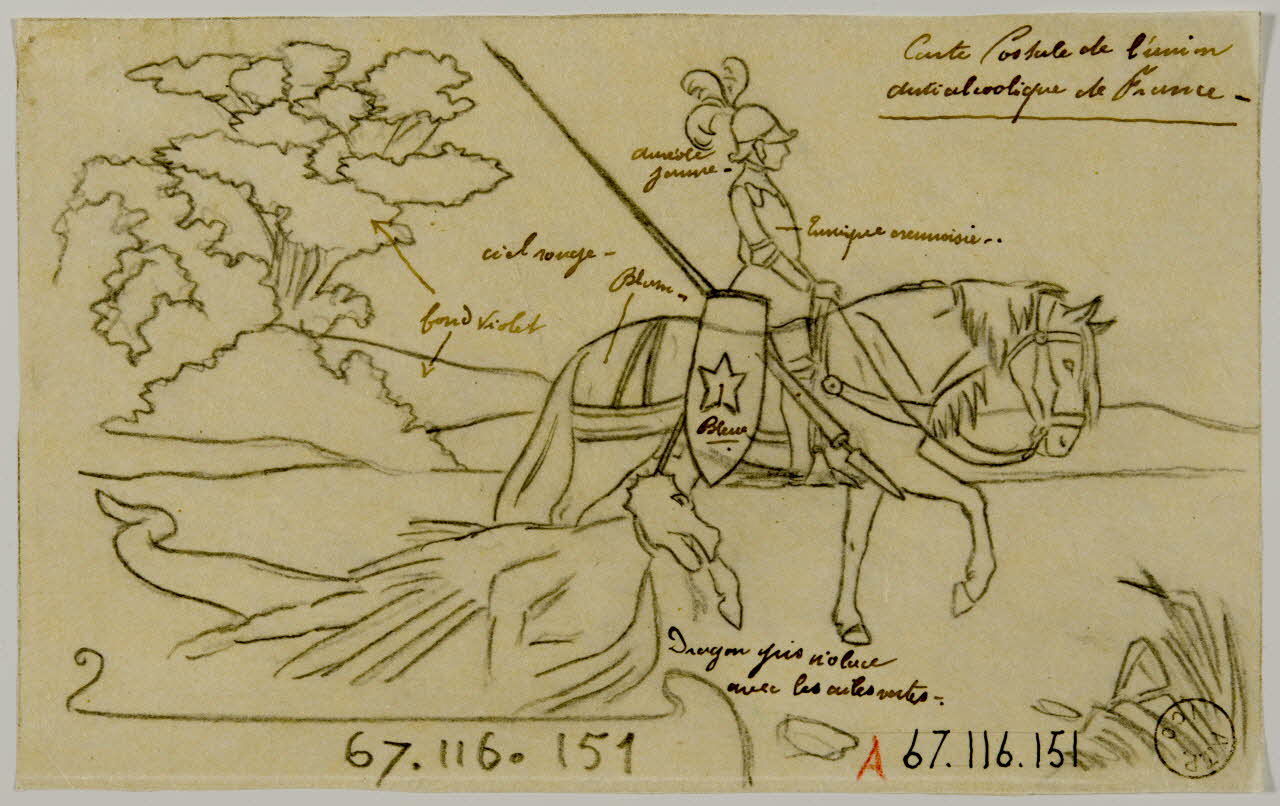 Carte Postale de l'union
antialcoolique de France -
auréole
jaune -
Tunique cramoisie ..
ciel rouge -
Blanc -
fond violet
1
Bleue
Dragon gris violacé
avec les ailes vertes -
67.116.151
A 67.116.151